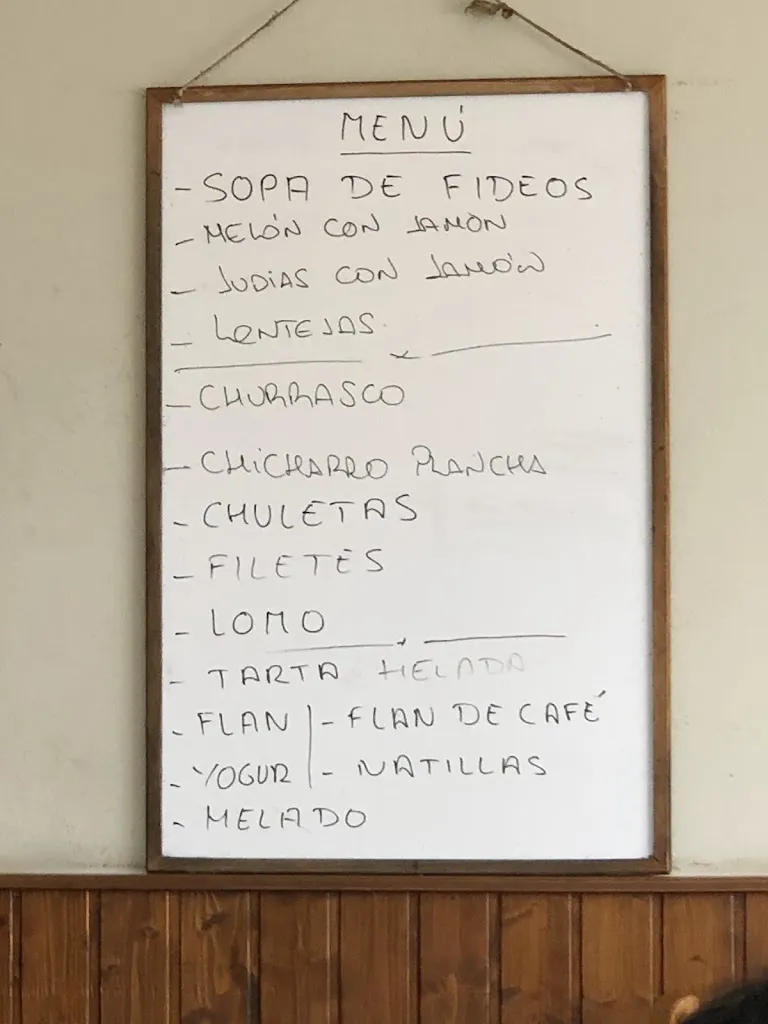 MENÚ
- SOPA DE FIDEOS
- MELÓN CON JAMÓN
- JUDIAS CON JAMÓN
- LENTEJAS
- CHURRASCO
- CHICHARRO PLANCHA
- CHULETAS
- FILETES
- LOMO
- TARTA HELADA
- FLAN | - FLAN DE CAFÉ
- YOGUR | - NATILLAS
- MELADO